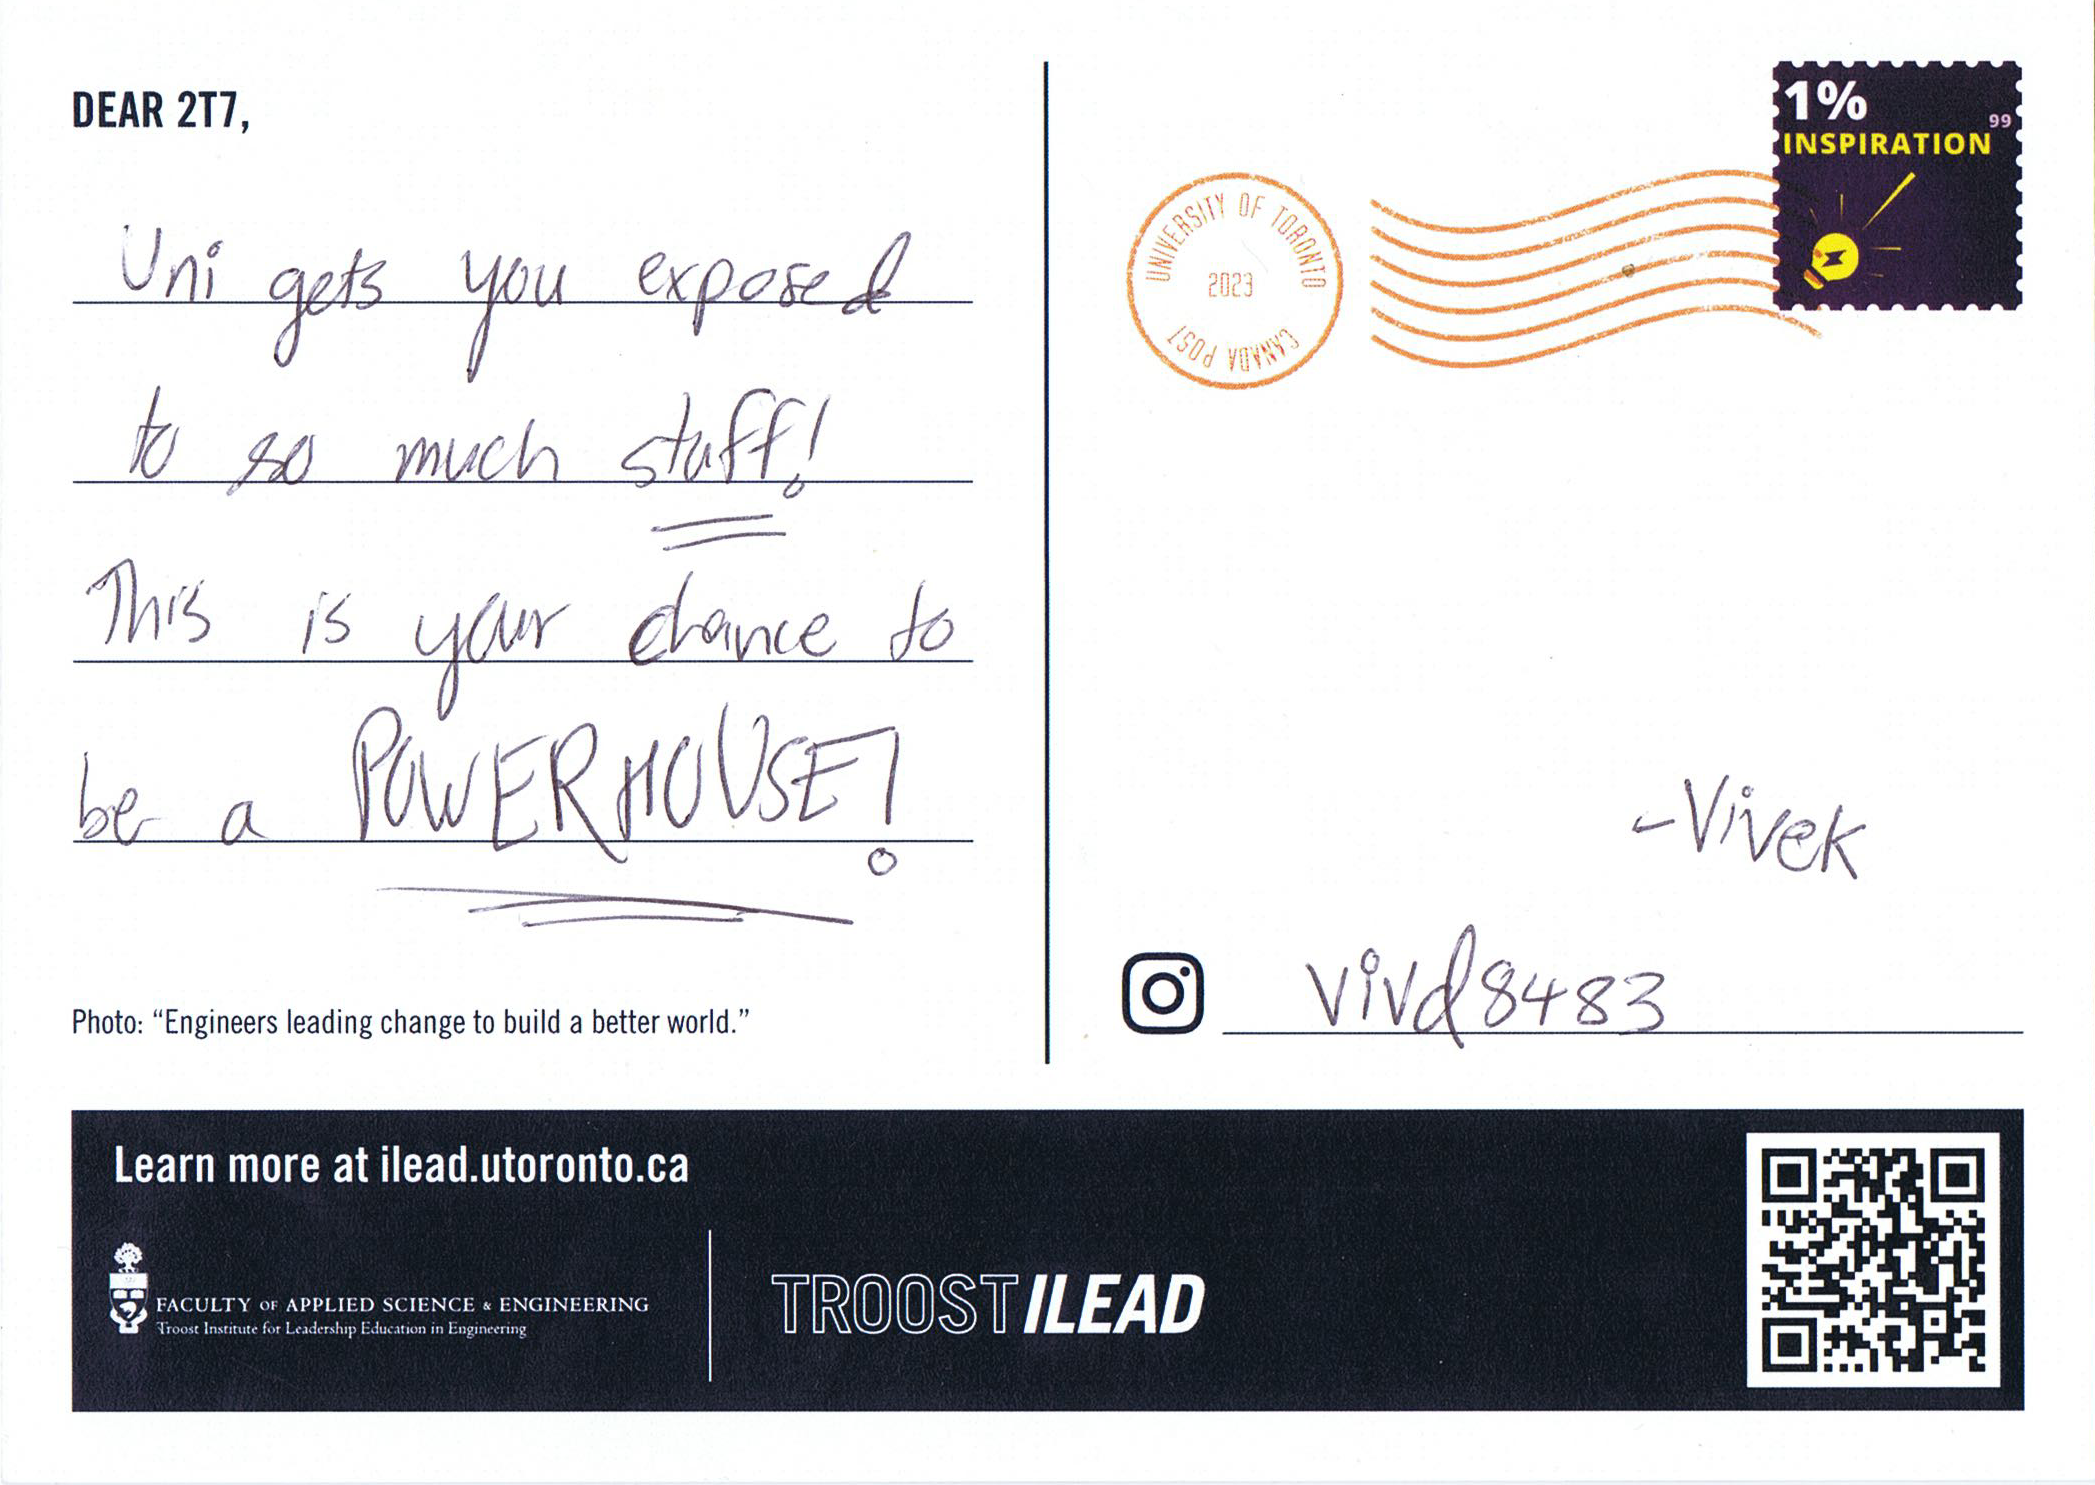 DEAR 2T7,
Uni gets you exposed
to so much stuff!
This is your chance to
be a POWERHOUSE!
Photo: “Engineers leading change to build a better world.”
1%
99
INSPIRATION
UNIVERSITY OF TORONTO
2023
CANADA POST
-Vivek
vivd8483
Learn more at ilead.utoronto.ca
FACULTY OF APPLIED SCIENCE & ENGINEERING
Troost Institute for Leadership Education in Engineering
TROOST ILEAD